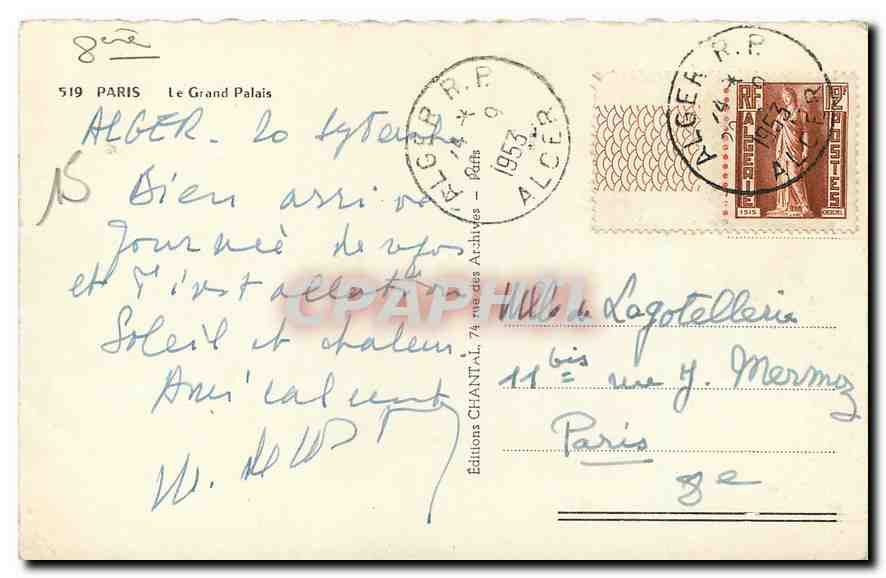 8ème
519 PARIS Le Grand Palais
ALGER. 20 Septembre
15
Bien arrivé
Journée de repos
et d'installation
Soleil et chaleur.
Amicalement
ALGER R.P.
14 * 9
1953
ALGER
ALGER R.P.
14 * 9
20 1953
ALGER
RF
12F
ALGERIE
POSTES
ISIS
Editions CHANTAL, 74 rue des Archives - Paris
CPAPHIL
Mlle de Lagotellerie
11 bis rue J. Mermoz
Paris
8e